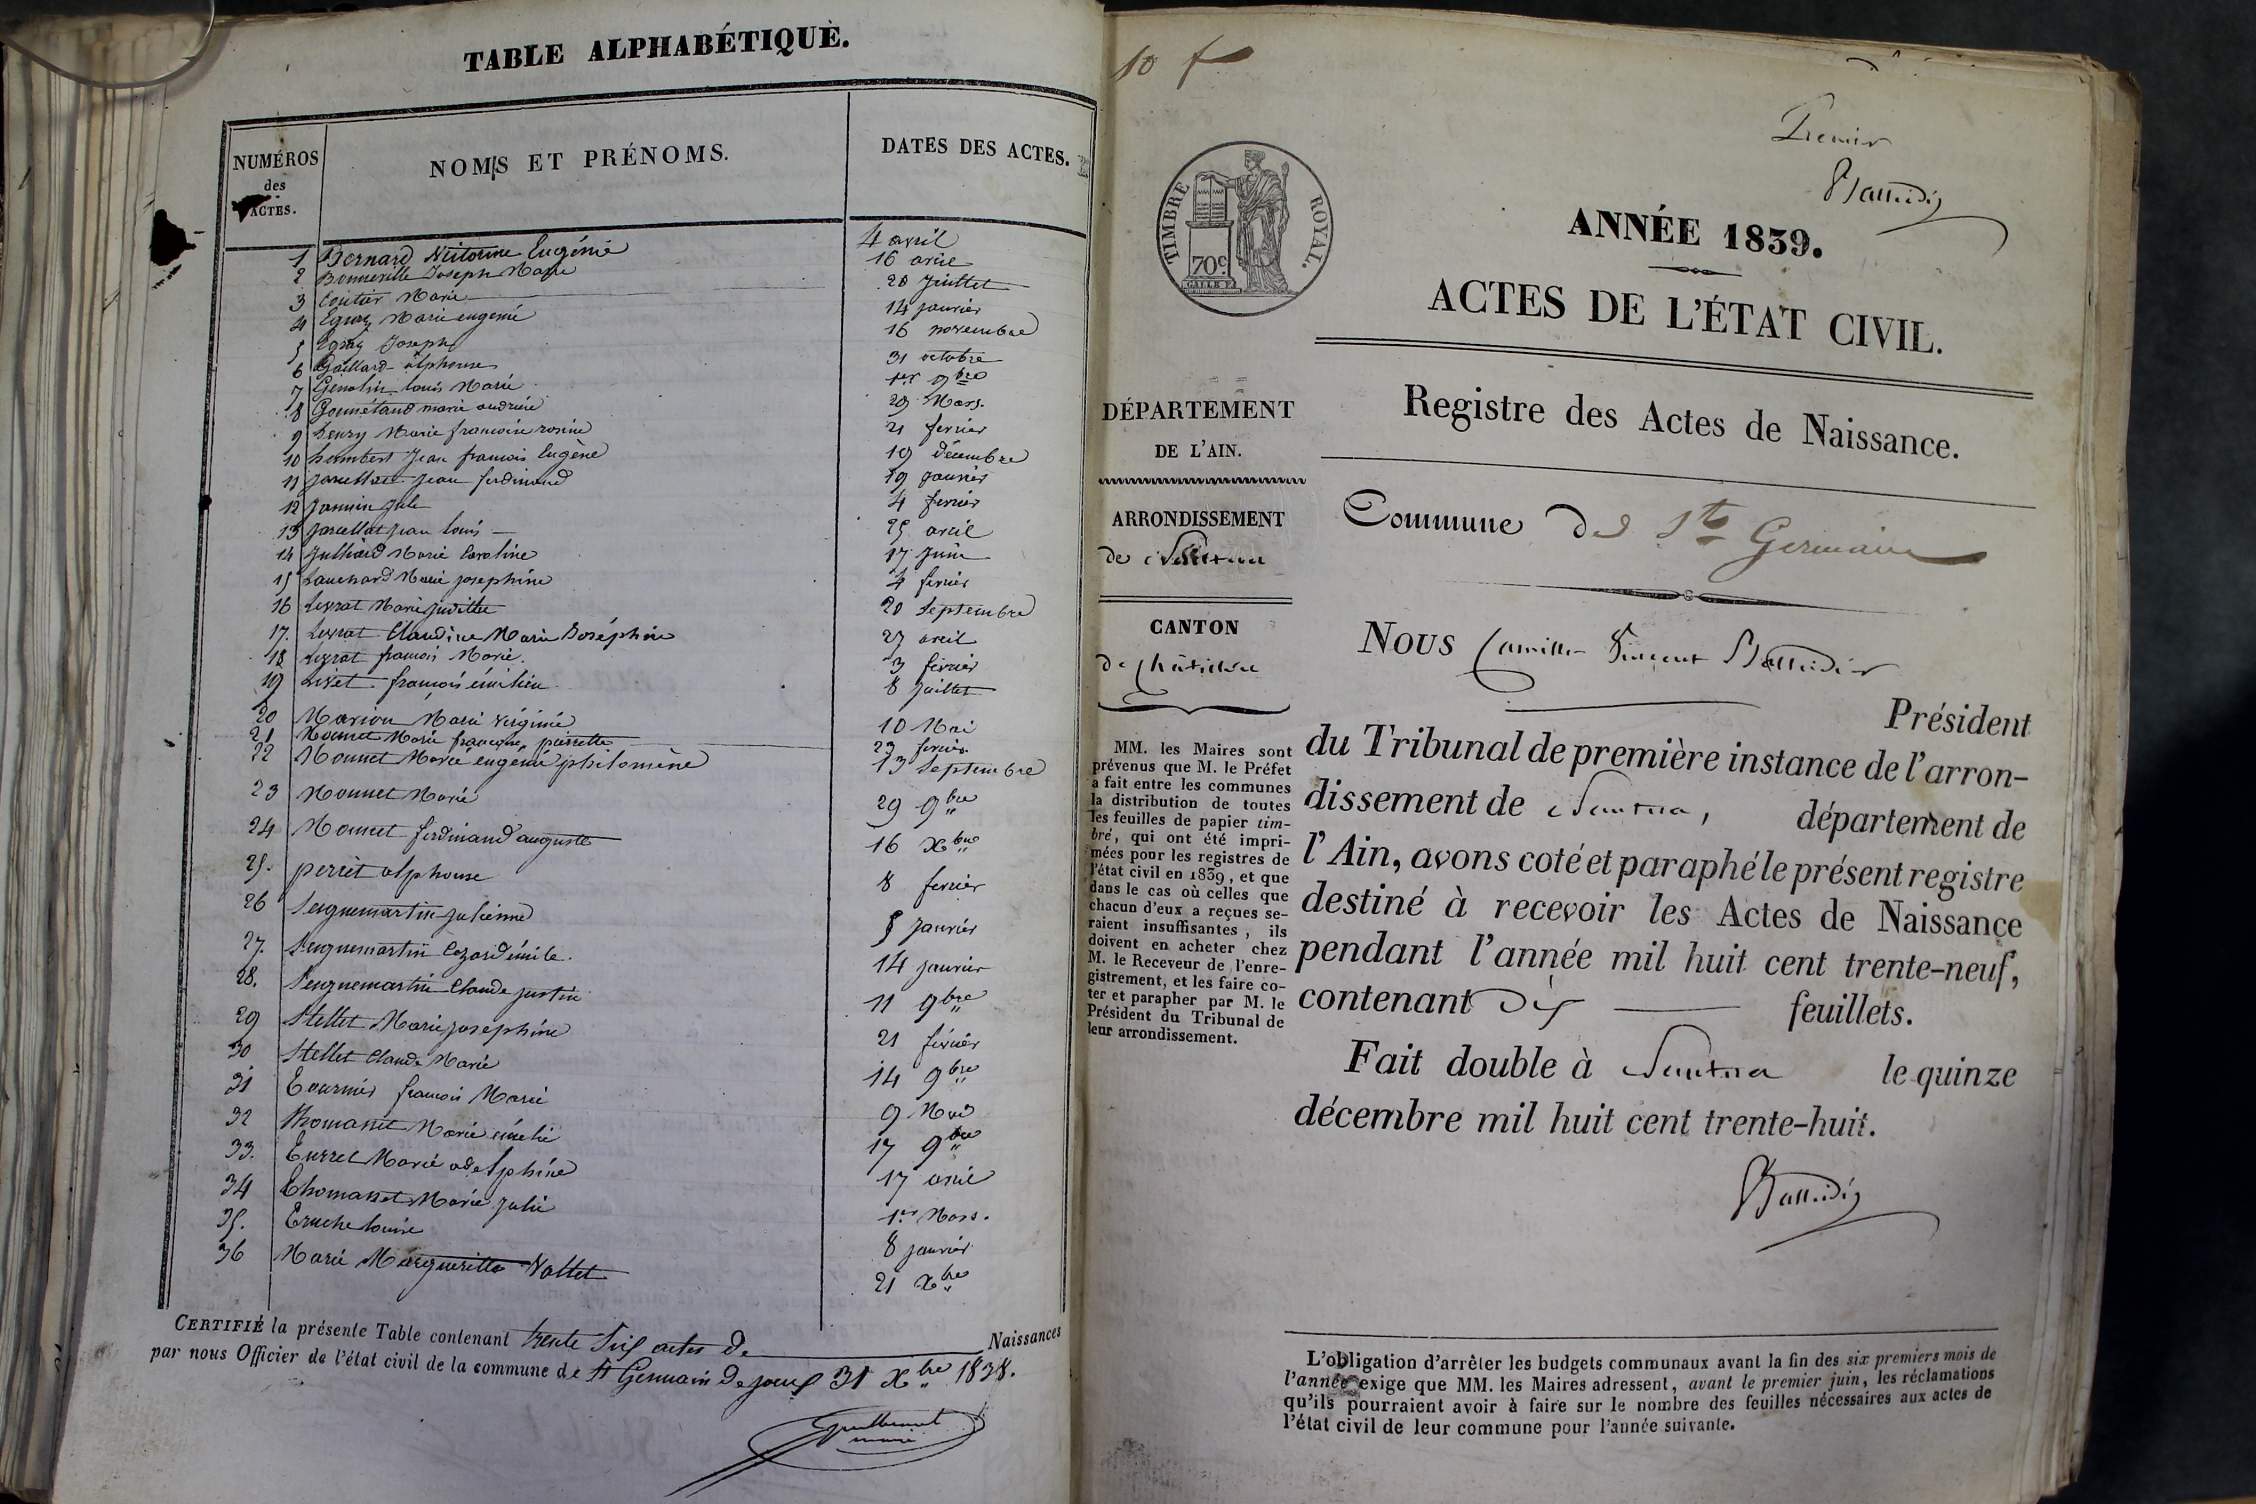 TABLE ALPHABÉTIQUE.
NUMÉROS
des
ACTES.
NOMS ET PRÉNOMS.
DATES DES ACTES.
1 Bernard Victorine Eugénie 4 avril
2 Bonneville Joseph Marie 16 avril
3 Coutier Marie 28 Juillet
4 Egraz Marie eugenie 14 janvier
5 Egraz Joseph 16 novembre
6 Gaillard alphonse 31 octobre
7 Genolin louis Marie 1er 9bre
8 marie andréïe 29 Mars.
9 henry Marie francoise rosine 21 fevrier
10 humbert Jean francois Eugène 19 décembre
11 jean ferdinand 19 janvier
12 jannin jule 4 fevrier
13 jarcellat jean louis 25 avril
14 Julliard Marie Caroline 17 Juin
15 Lauenard Marie josephine 4 fevrier
16 Levrat Marie 20 Septembre
17. Levrat Claudine Marie Joséphine 27 avril
18 Levrat francois Marie. 3 février
19 Livet francois émilien 8 juillet
20 Marion Marie virginie 10 Mai
21 Monnet Marie françoise pierrette 23 fevrier
22 Monnet Marie eugénie philomène 13 Septembre
23 Monnet Marie 29 9bre
24 Monnet ferdinand auguste 16 Xbre
25. perret alphonse 8 fevrier
26 Seignemartin julienne 5 Janvier
27. Seignemartin Cezard émile. 14 janvier
28. Seignemartin Claude justin 11 9bre
29 Stellet Marie josephine 21 février
30 Stellet Claude Marie 14 9bre
31 Tournier francois Marie 9 Mai
32 Thomasset Marie émelie 17 9bre
33. Turrel Marie adelphine 17 avril
34 Thomasset Marie julie 1er Mars.
35. Truche louise 8 janvier
36 Marie Margueritte Vallet 21 Xbre
CERTIFIÉ la présente Table contenant trente Six actes de Naissances
par nous Officier de l'état civil de la commune de St Germain de joux 31 Xbre 1838.
maire
10 f
Premier
TIMBRE ROYAL.
70c
ANNÉE 1839.
ACTES DE L'ÉTAT CIVIL.
Registre des Actes de Naissance.
DÉPARTEMENT
DE L'AIN.
ARRONDISSEMENT
de Nantua
CANTON
de Châtillon
MM. les Maires sont
prévenus que M. le Préfet
a fait entre les communes
la distribution de toutes
les feuilles de papier tim-
bré, qui ont été impri-
mées pour les registres de
l'état civil en 1839, et que
dans le cas où celles que
chacun d'eux a reçues se-
raient insuffisantes, ils
doivent en acheter chez
M. le Receveur de l'enre-
gistrement, et les faire co-
ter et parapher par M. le
Président du Tribunal de
leur arrondissement.
Commune de St Germain
NOUS Camille Vincent
Président
du Tribunal de première instance de l'arron-
dissement de Nantua, département de
l'Ain, avons coté et paraphé le présent registre
destiné à recevoir les Actes de Naissance
pendant l'année mil huit cent trente-neuf,
contenant Dix feuillets.
Fait double à Nantua le quinze
décembre mil huit cent trente-huit.
L'obligation d'arrêter les budgets communaux avant la fin des six premiers mois de
l'année exige que MM. les Maires adressent, avant le premier juin, les réclamations
qu'ils pourraient avoir à faire sur le nombre des feuilles nécessaires aux actes de
l'état civil de leur commune pour l'année suivante.